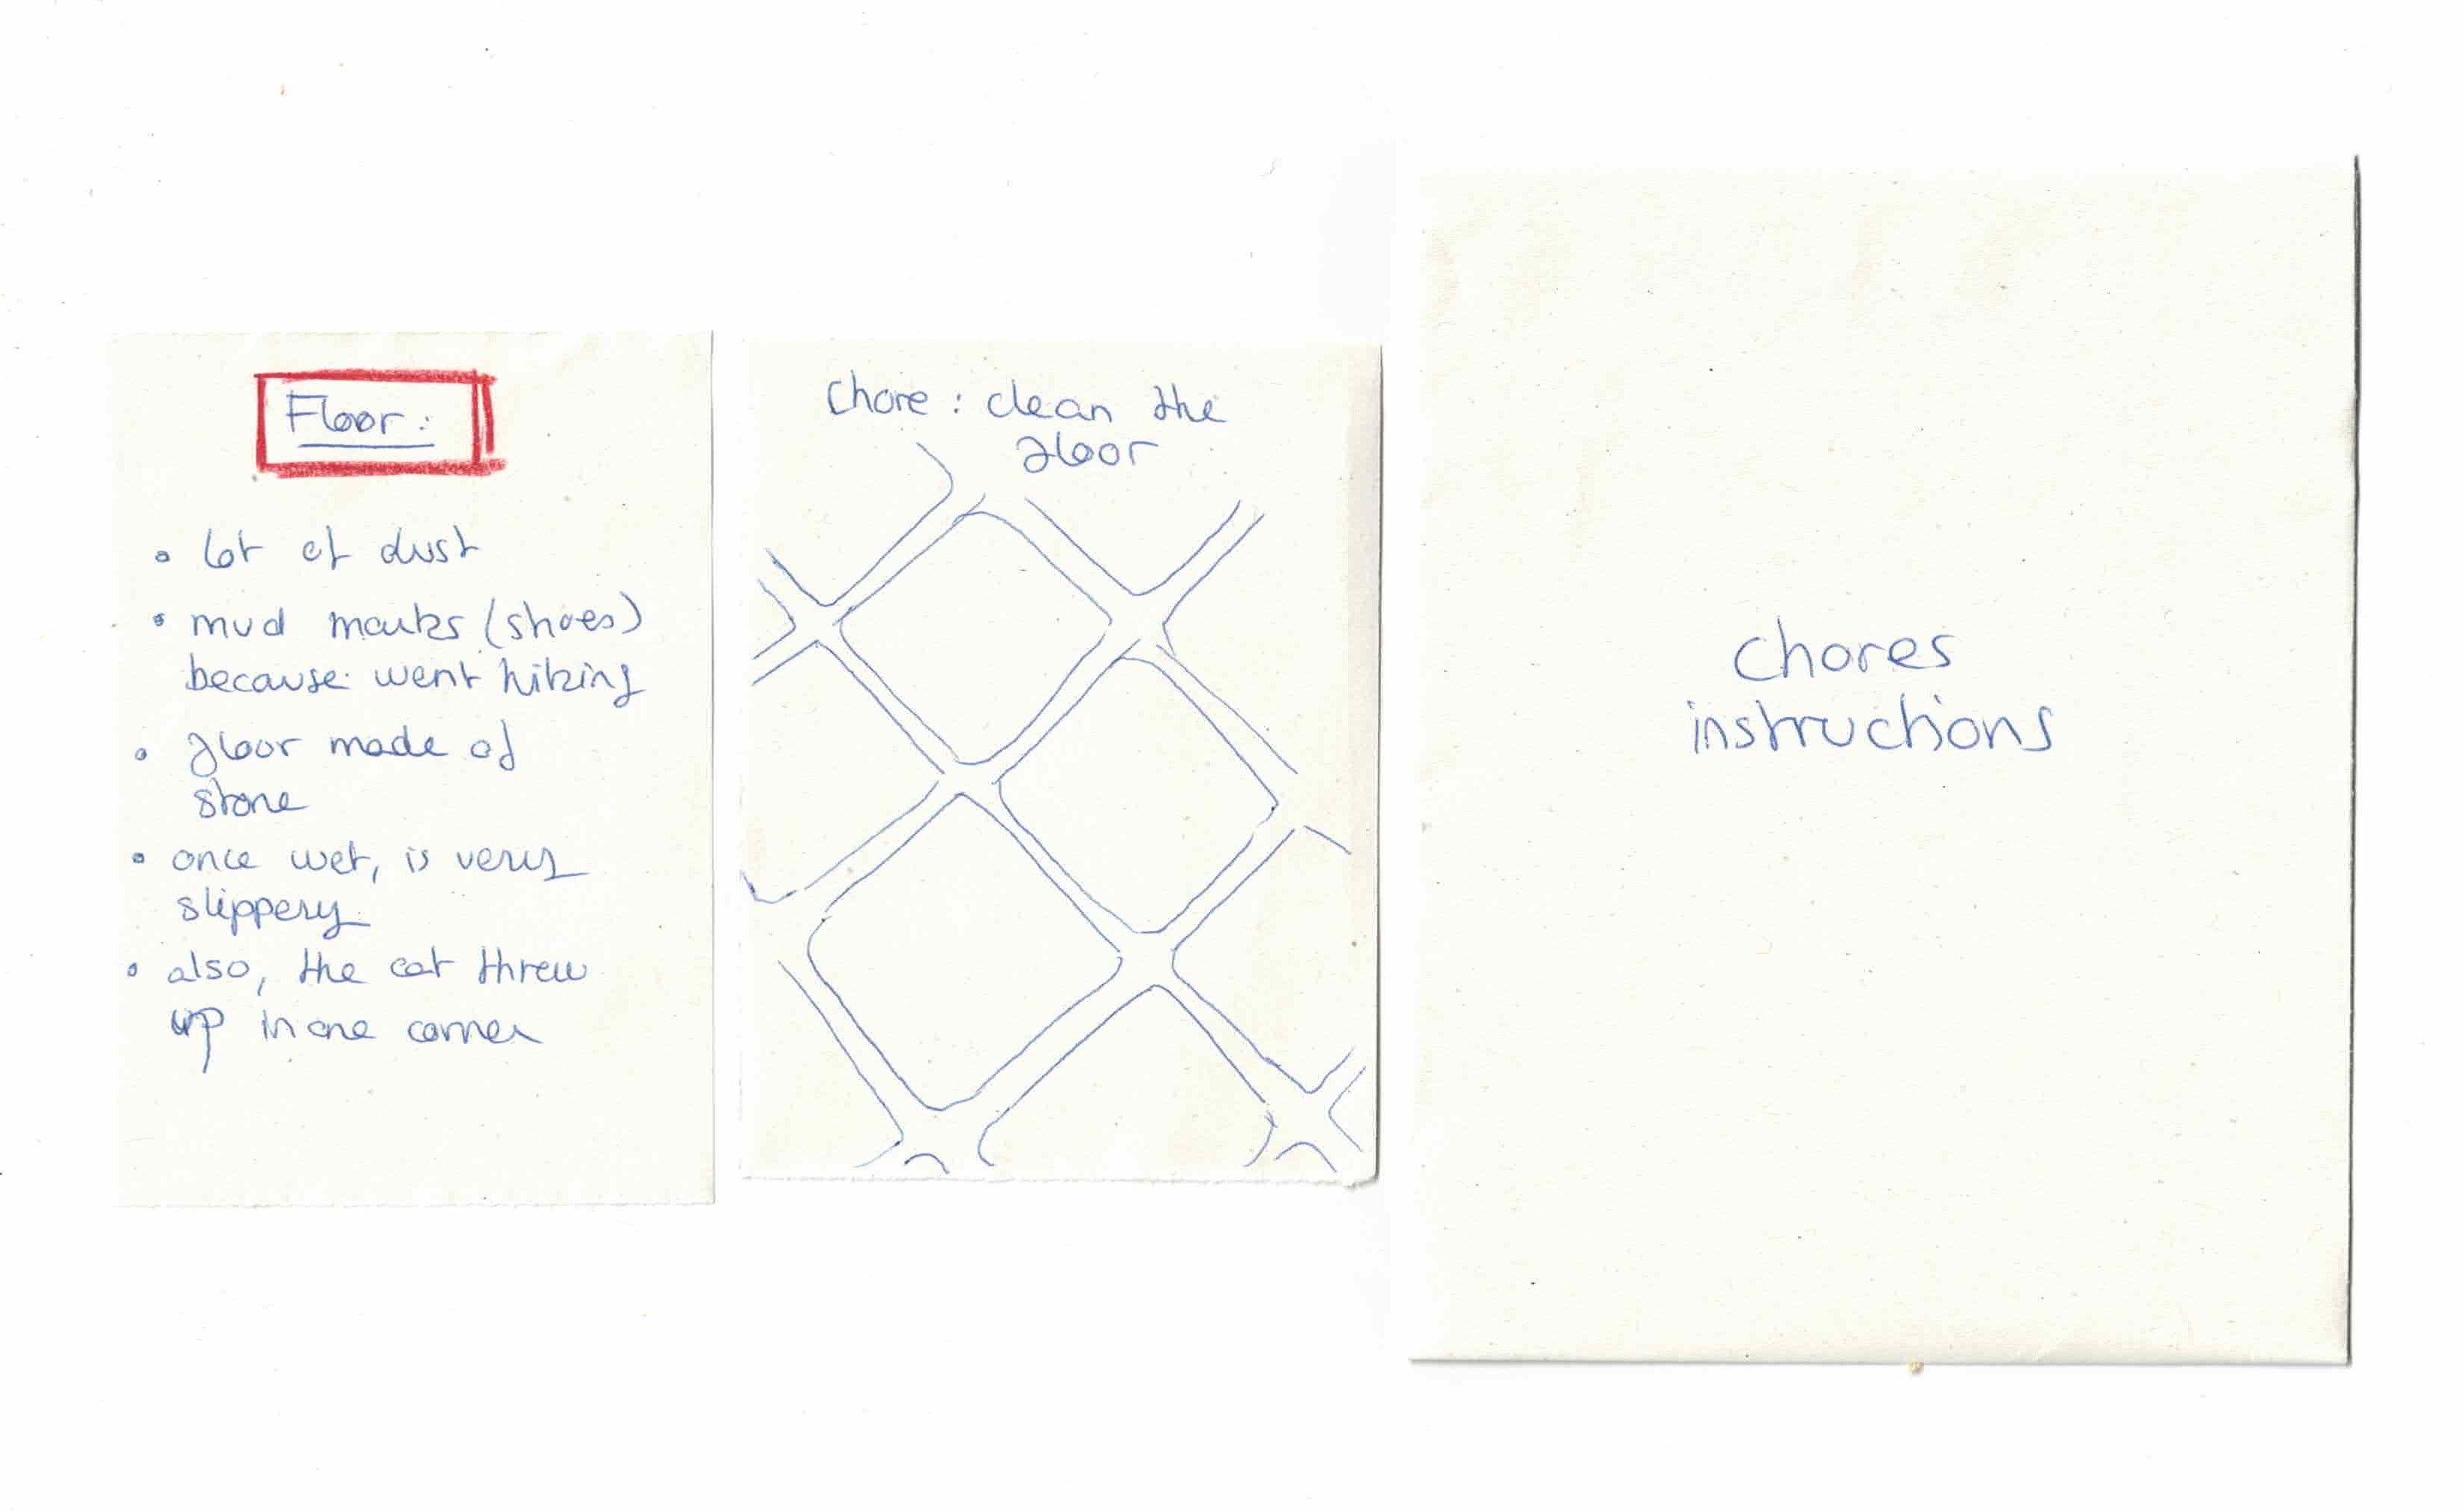 Floor:
• lot of dust
• mud marks (shoes)
because went hiking
• floor made of
stone
• once wet, is very
slippery
• also, the cat threw
up in one corner
Chore: clean the
floor
Chores
instructions